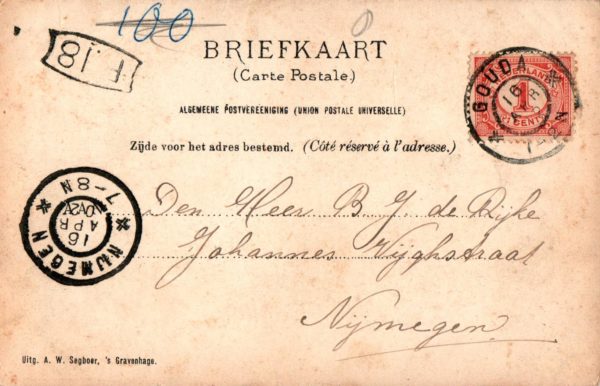 100
F. 18
BRIEFKAART
(Carte Postale.)
ALGEMEENE POSTVEREENIGING (UNION POSTALE UNIVERSELLE)
Zijde voor het adres bestemd. (Côté réservé à l'adresse.)
NEDERLAND
1
CENT
GOUDA
16
Den Heer B. J. de Dijke
Johannes Vijghstraat
Nijmegen
NIJMEGEN
16
APR
7-8N
Uitg. A. W. Segboer, 's Gravenhage.